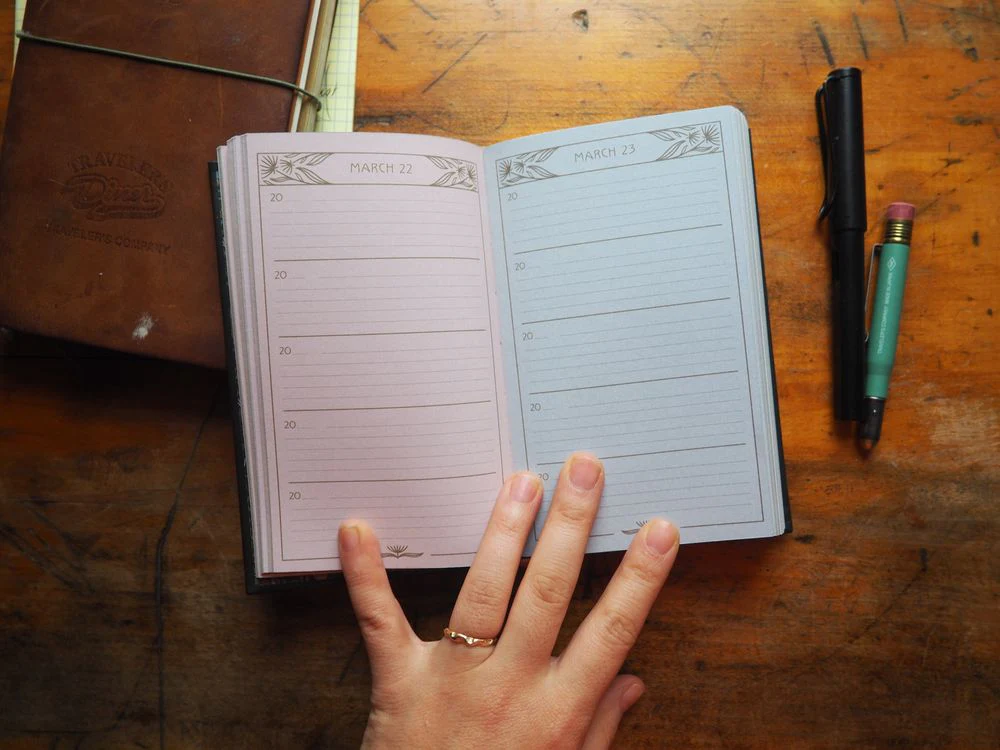 TRAVELER'S
Diner
TRAVELER'S COMPANY
MARCH 22
20
20
20
20
20
MARCH 23
20
20
20
20
20